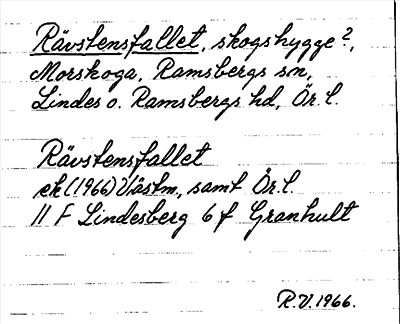 Rävstensfallet, skogshygge?,
Morskoga, Ramsbergs sn,
Lindes o. Ramsbergs hd, Ör. l.
Rävstensfallet
ek (1966) Västm, samt Ör. l.
11 F Lindesberg 6 f Granhult
R.V. 1966.